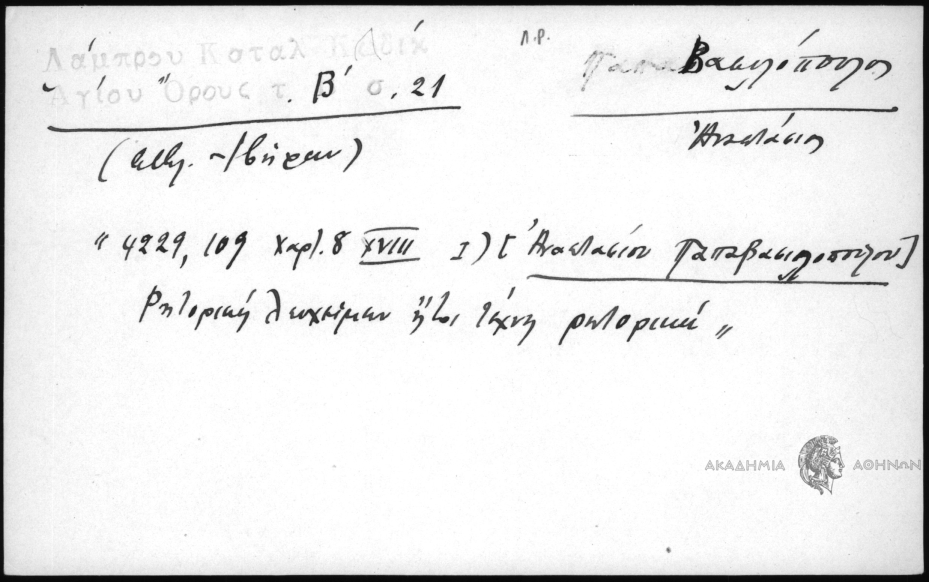 Λάμπρου Καταλ Κωδίκ
Ἁγίου Ὄρους τ. Β΄ σ. 21
Λ.Ρ.
ΠαπαΒασιλόπουλος
Ἀναστάσιος
Ἰβήρων)
" 4229, 109 χαρτ. 8 XVIII I) [Ἀναστασίου Παπαβασιλοπούλου]
Ῥητορικὴ ἤτοι τέχνη ῥητορική "
ΑΚΑΔΗΜΙΑ ΑΘΗΝΩΝ